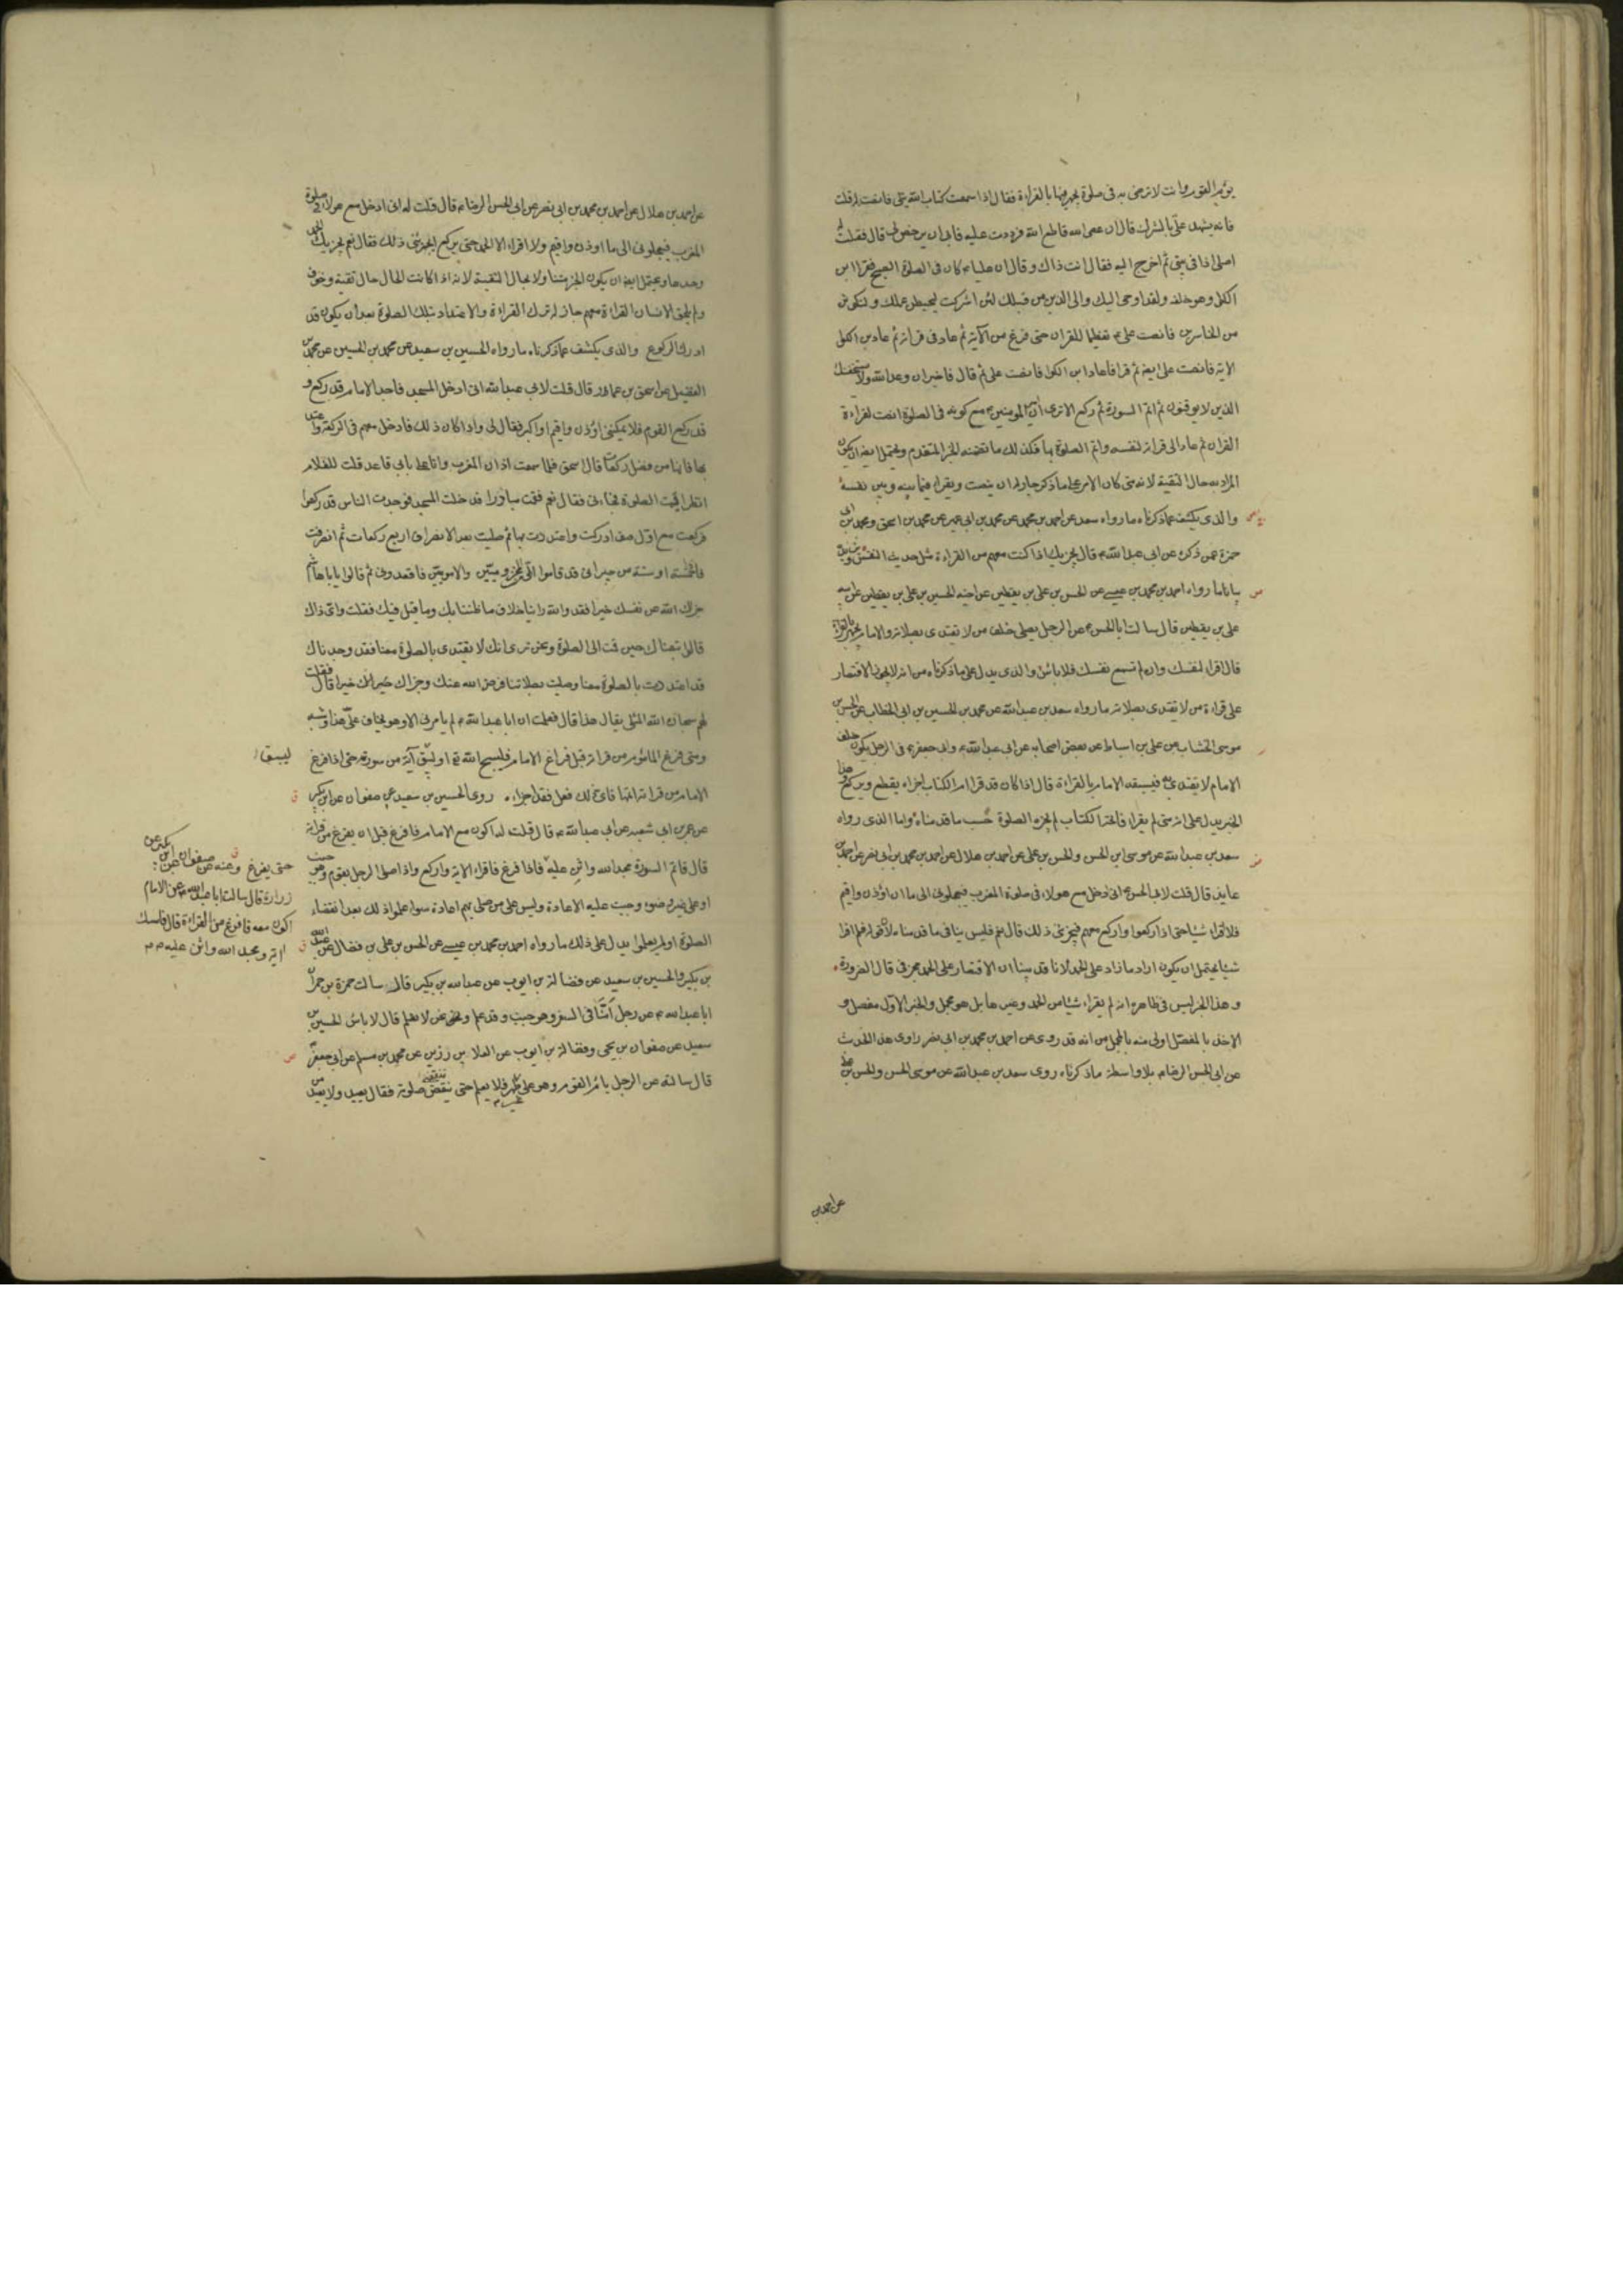 يؤم القوم وانت لا ترضى به فى صلوة يجهر فيها بالقراءة فقال اذا سمعت كتاب الله يتلى فانصت له قلت
فانه يشهد على بالشرك قال ان عصى الله فاطع الله فرددت عليه فابى ان يرخص لى قال فقلت له
اصلى اذا فى بيتى ثم اخرج اليه فقال انت وذاك وقال ان عليا ع كان فى صلوة الصبح فقرا ابن
الكوا وهو خلفه ولقد اوحى اليك والى الذين من قبلك لئن اشركت ليحبطن عملك ولتكونن
من الخاسرين فانصت على ع تعظيما للقران حتى فرغ من الآية ثم عاد فى قراته ثم عاد ابن الكوا
الاية فانصت على ايضا ثم قرا فاعاد ابن الكوا فانصت على ثم قال فاصبر ان وعد الله ولا يستخفنك
الذين لا يوقنون ثم اتم السورة ثم ركع الا ترى ان امير المومنين ع مع كونه فى الصلوة انصت لقراءة
القران ثم عاد الى قراته لنفسه واتم الصلوة بها فكذلك ما تضمنه الخبر المتقدم ويحتمل ايضا ان يكون
المراد به حال التقية لانه متى كان الامر على ما ذكر جاز له ان ينصت ويقرا فيما بينه وبين نفسه
والذى يكشف عما ذكرناه ما رواه سعد عن احمد بن محمد عن محمد بن ابى عمير عن محمد بن اسحق ومحمد بن ابى
حمزة عمن ذكره عن ابى عبد الله ع قال يجزيك اذا كنت معهم من القراءة مثل حديث النفس ويزيده
بيانا ما رواه احمد بن محمد بن عيسى عن الحسن بن على بن يقطين عن اخيه الحسين بن على بن يقطين عن ابيه
على بن يقطين قال سالت ابا الحسن ع عن الرجل يصلى خلف من لا يقتدى بصلاته والامام يجهر بالقراءة
قال اقرا لنفسك وان لم تسمع نفسك فلا باس والذى يدل على ما ذكرناه من انه لا يجوز الاقتصار
على قراءة من لا يقتدى بصلاته ما رواه سعد بن عبد الله عن محمد بن الحسين بن ابى الخطاب عن الحسن بن
موسى الخشاب عن على بن اسباط عن بعض اصحابه عن ابى عبد الله ع وابى جعفر ع فى الرجل يكون خلف
الامام لا يقتدى به فيسبقه الامام بالقراءة قال اذا كان قد قرا ام الكتاب اجزاه يقطع ويركع وهذا
الخبر يدل على انه متى لم يقرا فاتحة الكتاب لم يجزه الصلوة حسب ما قدمناه واما الذى رواه
سعد بن عبد الله عن موسى ابن الحسن والحسن بن على عن احمد بن هلال عن احمد بن محمد بن ابى نصر عن احمد بن
عايذ قال قلت لابى الحسن ع انى ادخل مع هولاء فى صلوة المغرب فيعجلونى الى ما ان اوذن واقيم
فلا اقرا شيئا حتى اذا ركعوا واركع معهم فيجزينى ذلك قال نعم فليس ينافى ما قدمناه لان قوله فلم اقرا
شيئا يحتمل ان يكون اراد ما زاد على الحمد لانا قد بينا ان الاقتصار على الحمد مجز فى حال الضرورة
وهذا الخبر ليس فى ظاهره انه لم يقراء شيئا من الحمد وغيرها بل هو مجمل والخبر الاول مفصل و
الاخذ بالمفصل اولى منه بالمجمل من انه قد روى عن احمد بن محمد بن ابى نصر راوى هذا الحديث
عن ابى الحسن الرضا ع بلا واسطة ما ذكرناه روى سعد بن عبد الله عن موسى بن الحسن والحسن بن على
عن احمد بن
عن احمد بن هلال عن احمد بن محمد بن ابى نصر عن ابى الحسن الرضا ع قال قلت له انى ادخل مع هولاء فى صلوة
المغرب فيعجلونى الى ما اوذن واقيم ولا اقراء الا الحمد حتى يركع ايجزينى ذلك فقال نعم يجزيك الحمد
وحدها ويحتمل ايضا ان يكون الخبر متناولا لحال التقية لانه اذا كانت الحال حال تقية وخوف
ولم يلحق الانسان القراءة معهم جاز له ترك القراءة والاعتداد بتلك الصلوة بعد ان يكون قد
ادرك الركوع والذى يكشف عما ذكرناه ما رواه الحسين بن سعيد عن محمد بن الحسين عن محمد بن
الفضيل عن اسحق بن عمار قال قلت لابى عبد الله انى ادخل المسجد فاجد الامام قد ركع و
قد ركع القوم فلا يمكننى اوذن واقيم او اكبر فقال لى واذا كان ذلك فادخل معهم فى الركعة واعتد
بها فانها من افضل ركعاتك قال اسحق فلما سمعت اذان المغرب وانا على بابى قاعد قلت للغلام
انظر اقيمت الصلوة فجاءنى فقال نعم فقمت مبادرا فدخلت المسجد فوجدت الناس قد ركعوا
فركعت مع اول صف ادركت واعتددت بها ثم صليت بعد الانصراف اربع ركعات ثم انصرفت
فاذا خمسة او ستة من جيرانى قد قاموا الى من المخزوميين والامويين فاقعدونى ثم قالوا يا ابا هاشم
جزاك الله عن نفسك خيرا فقد والله راينا خلاف ما ظننا بك وما قيل فيك فقلت واى ذاك
قالوا تبعناك حين قمت الى الصلوة ونحن نرى انك لا تقتدى بالصلوة معنا فقد وجدناك
قد اعتددت بالصلوة معنا وصليت بصلاتنا فرضى الله عنك وجزاك خيرا قال فقلت
لهم سبحان الله المثلى يقال هذا قال فعلمت ان ابا عبد الله ع لم يامرنى الا وهو يخاف على هذا وشبهه
ومتى فرغ الماموم من قراته قبل فراغ الامام فليسبح الله تع او ليبق آية من سورته حتى اذا فرغ
الامام من قراته اتمها فاى ذلك فعل فقد اجزاه . روى الحسين بن سعيد عن صفوان عن ابن بكير
عن عمر بن ابى شعبه عن ابى عبد الله ع قال قلت له اكون مع الامام فافرغ قبل ان يفرغ من قراته
قال فاتم السورة ومجد الله واثن عليه فاذا فرغ فاقراء الاية واركع واذا صلى الرجل بقوم وهو جنب
او على غير وضوء وجبت عليه الاعادة وليس على من صلى بهم اعادة سواء علموا ذلك بعد انقضاء
الصلوة او لم يعلموا يدل على ذلك ما رواه احمد بن محمد بن عيسى عن الحسن بن على بن فضال عن عبد الله
بن بكير والحسين بن سعيد عن فضالة بن ايوب عن عبد الله بن بكير قال سال حمزة بن حمران
ابا عبد الله ع عن رجل امنا فى السفر وهو جنب وقد علم ونحن لا نعلم قال لا باس الحسين بن
سعيد عن صفوان بن يحيى وفضالة بن ايوب عن العلا بن رزين عن محمد بن مسلم عن ابى جعفر ع
قال سالته عن الرجل يام القوم وهو على غير طهر فلا يعلم حتى تنقضى صلوته فقال يعيد ولا يعيد من
ليبق
حتى يفرغ وعنه عن صفوان عن ابن بكير عن
زرارة قال سالت ابا عبد الله ع عن الامام
اكون معه فافرغ من القراءة قال فامسك
اية ومجد الله واثن عليه